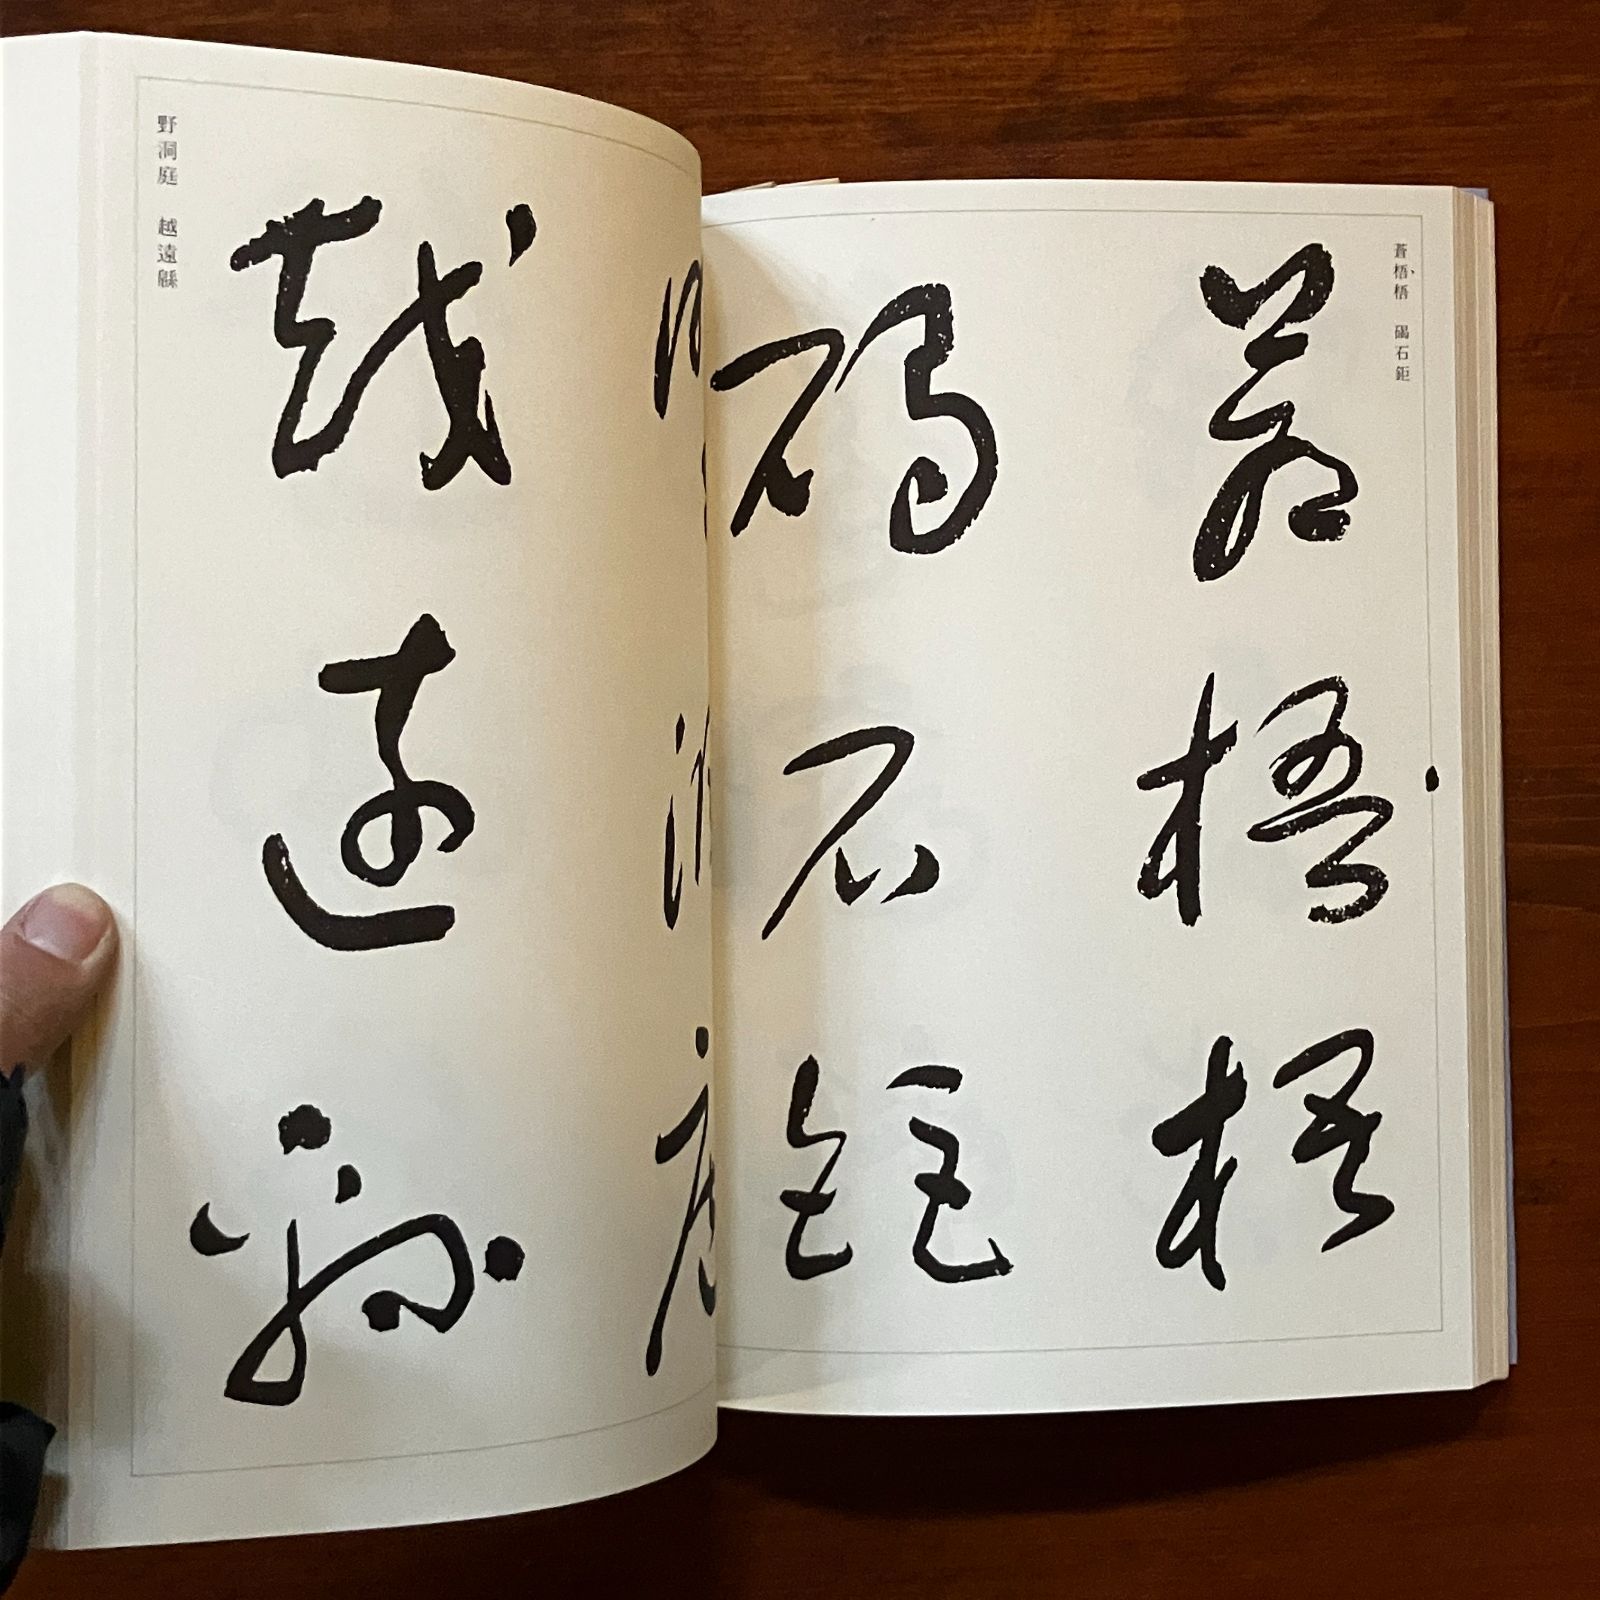 蒼梧、梧　碣石鉅
蒼梧梧
碣石鉅
野洞庭　越遠緜
野洞庭
越遠緜